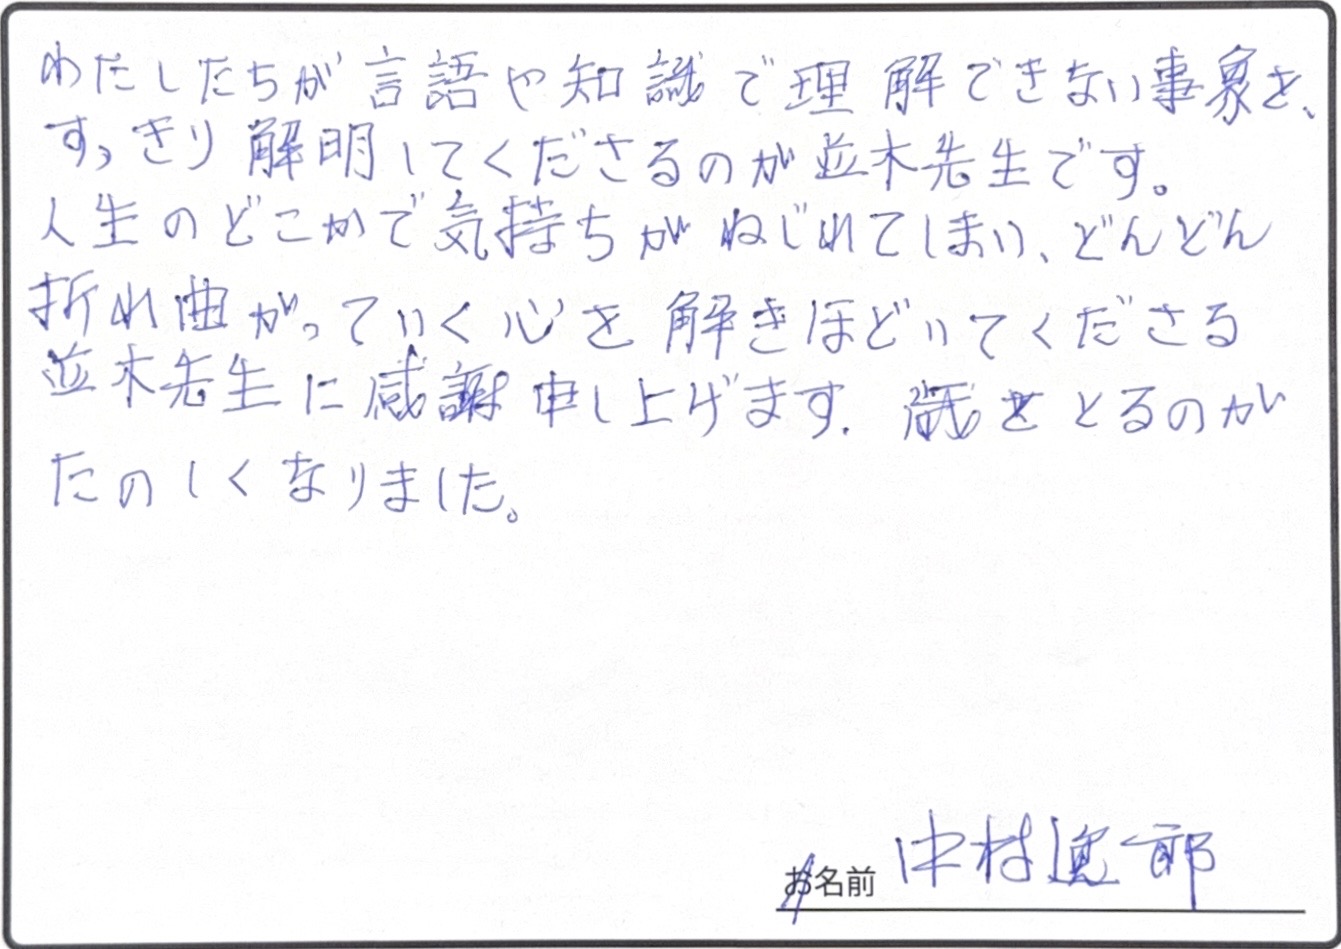 わたしたちが言語や知識で理解できない事象を、
すっきり解明してくださるのが並木先生です。
人生のどこかで気持ちがねじれてしまい、どんどん
折れ曲がっていく心を解きほどいてくださる
並木先生に感謝申し上げます. 歳をとるのが
たのしくなりました。
お名前 中村 一郎